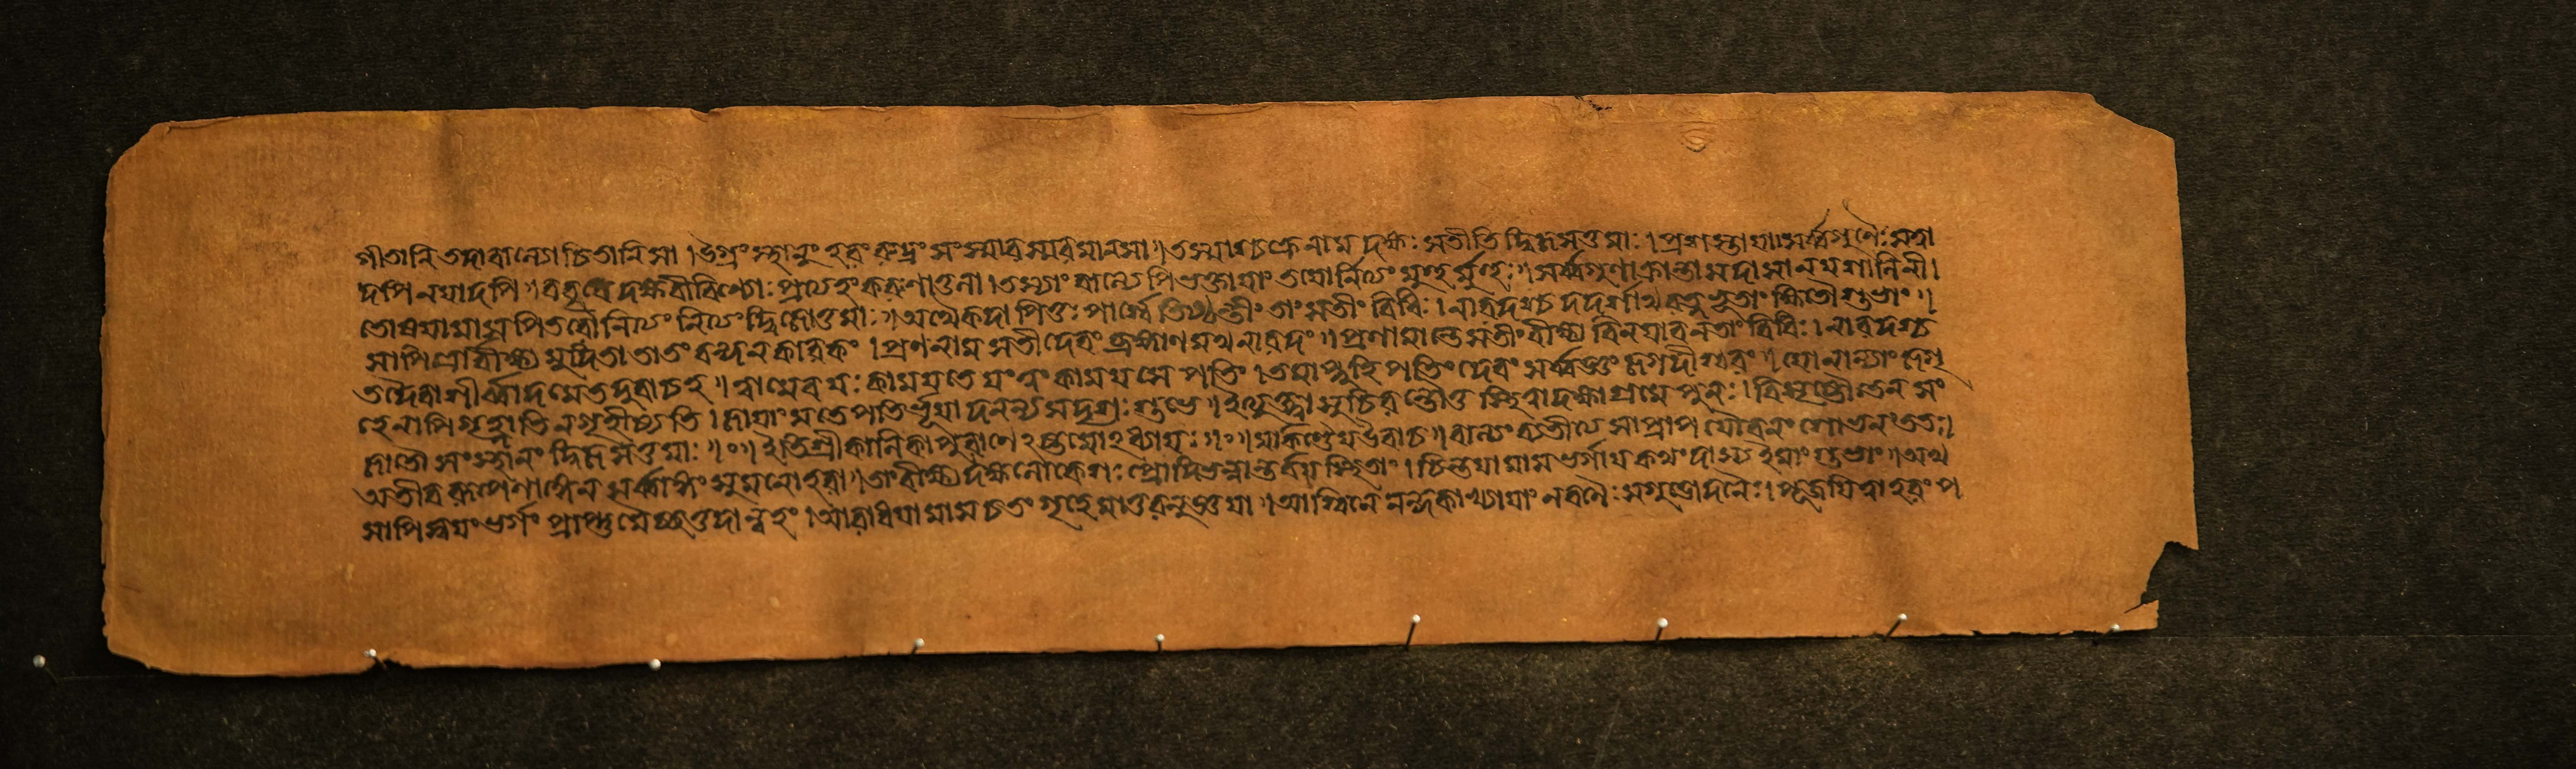 গীতানি তদা বাল্যোচিতানি সা । উগ্রং স্থাণুং হরং রুদ্রং সংস্মার স্মরমানসা ॥ তস্যাশ্চক্রে নাম দক্ষঃ সতীতি দ্বিজসত্তমাঃ । প্রশস্তায়াঃ সর্ব্বগুণৈঃ সত্বা
দপি নয়াদপি ॥ ববৃধে দক্ষবীরিণ্যোঃ প্রত্যহং করুণাতুলা । তস্যাং বাল্যেপি ভক্তায়াং তয়োর্নিত্যং মুহুর্মুহুঃ ॥ সর্ব্বগুণাক্রান্তা সদা সা নয়শালিনী ।
তোষয়ামাস পিতরৌ নিত্যং নিত্যং দ্বিজোত্তমাঃ ॥ অথৈকদা পিতুঃ পার্শ্বে তিষ্ঠন্তীং তাং সতীং বিধিঃ । নারদশ্চ দদর্শাথ রত্নভূতাং ক্ষিতৌ শুভাং ॥
সাপি তৌ বীক্ষ্য মুদিতা
প্রণনাম সতী দেবং ব্রহ্মাণমথ নারদং ॥ প্রণামান্তে সতীং বীক্ষ্য বিনয়াবনতাং বিধিঃ । নারদশ্চ
তদৈবাশীর্ব্বাদমেতদুবাচ হ ॥ ত্বামেব যঃ কাময়তে যং ত্বং কাময়সে পতিং । তমাপ্নুহি পতিং দেবং সর্ব্বজ্ঞং জগদীশ্বরং ॥ যো নান্যাং জগৃ
হে নাপি গৃহ্ণাতি ন গৃহীষ্যতি । জায়াং স তে পতির্ভূয়াদনন্যসদৃশঃ শুভে ॥ ইত্যুক্ত্বা সুচিরন্তৌ তু স্থিত্বা দক্ষাশ্রমে পুনঃ । বিসৃষ্টৌ তেন সং
জাতৌ সংস্থানং দ্বিজসত্তমাঃ ॥০॥ ইতি শ্রীকালিকাপুরাণে ঽষ্টমোঽধ্যায়ঃ ॥০॥ মার্কণ্ডেয় উবাচ ॥ বাল্যং ব্যতীত্য সা প্রাপ যৌবনং শোভনং ততঃ ।
অতীব রূপেণাঙ্গেন সর্ব্বাঙ্গং সুমনোহরা ॥ তাং বীক্ষ্য দক্ষো লোকেশঃ প্রোদ্ভিন্নান্তর্বয়স্থিতাং । চিন্তয়ামাস ভর্গায় কথং দাস্য ইমাং শুভাং ॥ অথ
সাপি স্বয়ং ভর্গং প্রাপ্তুমৈচ্ছত্তদান্বহং । আরাধয়ামাস চ তং গৃহে মাতুরনুজ্ঞয়া ॥ আশ্বিনে নন্দকাখ্যায়াং লবণৈঃ সগুড়োদনৈঃ । পূজয়িত্বা হরং প